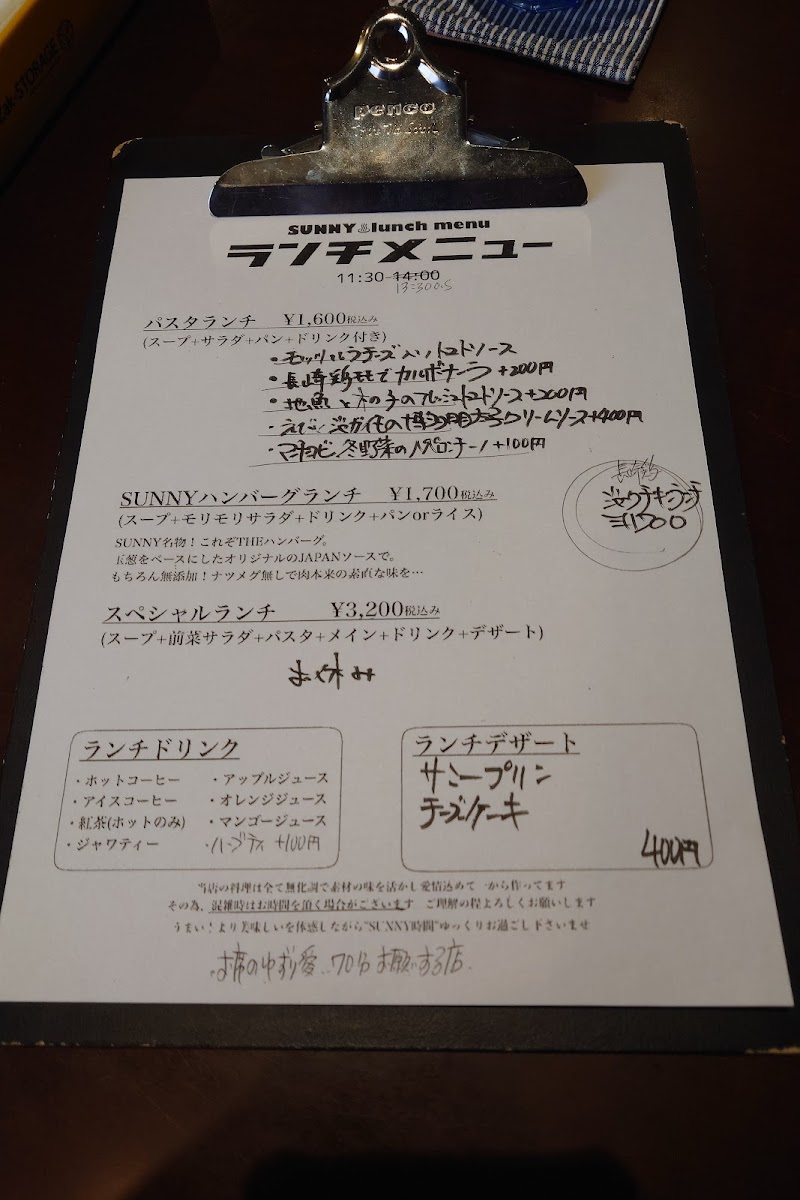 penco
SUNNY lunch menu
ランチメニュー
11:30-14:00
13:30 O.S
パスタランチ ¥1,600税込み
(スープ+サラダ+パン+ドリンク付き)
・モッツァレラチーズ入りトマトソース
・長崎鶏モモでカルボナーラ +200円
・地魚と木の子のフレッシュトマトソース+200円
・クリームソース+400円
・冬野菜のペペロンチーノ +100円
SUNNYハンバーグランチ ¥1,700税込み
(スープ+モリモリサラダ+ドリンク+パンorライス)
SUNNY名物！これぞTHEハンバーグ。
玉葱をベースにしたオリジナルのJAPANソースで。
もちろん無添加！ナツメグ無しで肉本来の素直な味を…
長崎
ランチ
スペシャルランチ ¥3,200税込み
(スープ+前菜サラダ+パスタ+メイン+ドリンク+デザート)
お休み
ランチドリンク
・ホットコーヒー ・アップルジュース
・アイスコーヒー ・オレンジジュース
・紅茶(ホットのみ) ・マンゴージュース
・ジャワティー ・ハーブティ +100円
ランチデザート
サニープリン
チーズケーキ
400円
当店の料理は全て無化調で素材の味を活かし愛情込めて一から作ってます
その為、混雑時はお時間を頂く場合がございます ご理解の程よろしくお願いします
うまい！より美味しいを体感しながら"SUNNY時間"ゆっくりお過ごし下さいませ
お席のゆずり愛..70分お願いする店.